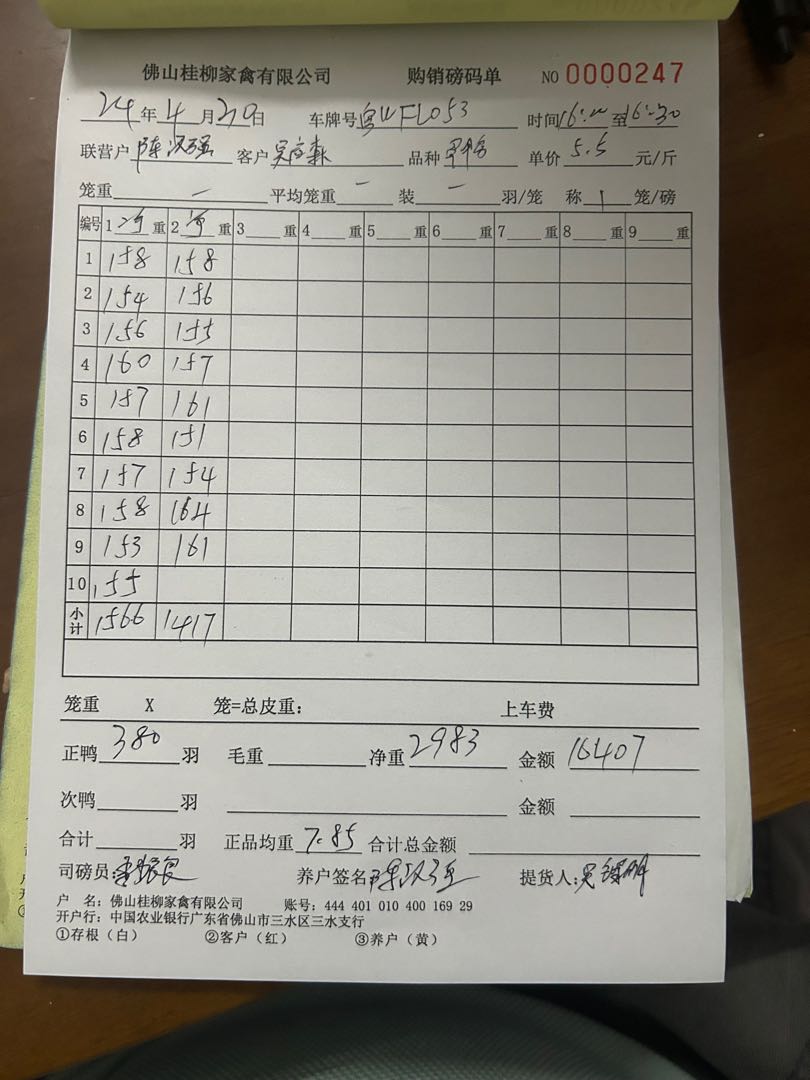 佛山桂柳家禽有限公司 购销磅码单 NO 0000247
24年4月20日 车牌号 FL053 时间16:00至16:30
联营户 陈汉强 客户 品种 单价 5.5 元/斤
笼重 — 平均笼重 — 装 — 羽/笼 称 1 笼/磅
编号 1 净 重 2 净 重 3 重 4 重 5 重 6 重 7 重 8 重 9 重
1 158 158
2 154 156
3 156 155
4 160 157
5 157 161
6 158 151
7 157 154
8 158 164
9 153 161
10 155
小计 1566 1417
笼重 X 笼=总皮重: 上车费
正鸭 380 羽 毛重 净重 2983 金额 16407
次鸭 羽 金额
合计 羽 正品均重 7.85 合计总金额
司磅员: 养户签名 陈汉强 提货人:
户 名: 佛山桂柳家禽有限公司 账号: 444 401 010 400 169 29
开户行: 中国农业银行广东省佛山市三水区三水支行
①存根（白） ②客户（红） ③养户（黄）